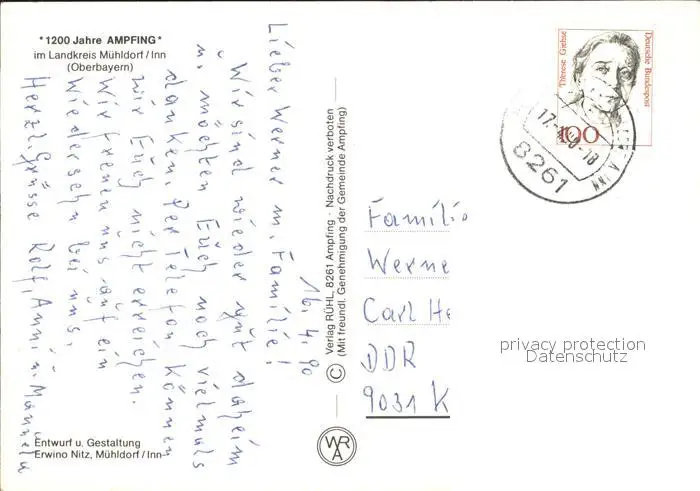 * 1200 Jahre AMPFING *
im Landkreis Mühldorf/Inn
(Oberbayern)
16.4.90
Lieber Werner m. Familie!
Wir sind wieder gut daheim
u. möchten Euch noch vielmals
danken. Per Telefon können
wir Euch nicht erreichen.
Wir freuen uns auf ein
Wiedersehn bei uns.
Herzl. Grüsse Rolf, Anni u. Manuela
Entwurf u. Gestaltung
Erwino Nitz, Mühldorf/Inn
© Verlag RÜHL, 8261 Ampfing · Nachdruck verboten
(Mit freundl. Genehmigung der Gemeinde Ampfing)
WRA
Therese Giehse
Deutsche Bundespost
100
8261
Famili
Werne
Carl He
DDR
9031 K
privacy protection
Datenschutz